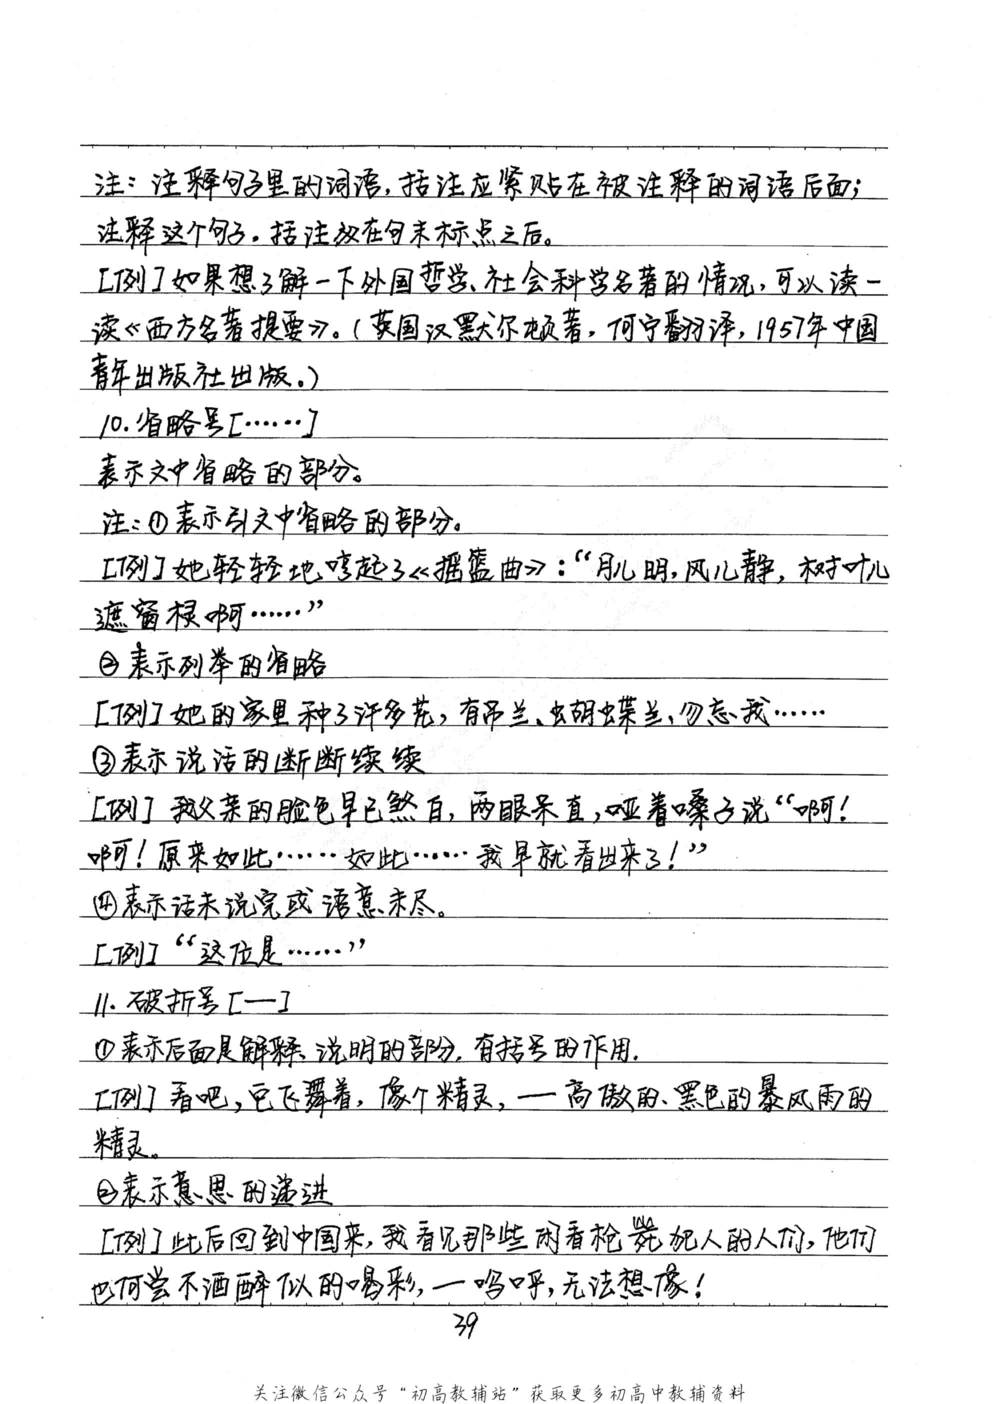 注：注释句子里的词语，括注应紧贴在被注释的词语后面；
注释这个句子，括注放在句末标点之后。
[例]如果想了解一下外国哲学、社会科学名著的情况，可以读一
读《西方名著提要》。（英国汉默尔顿著，何宁翻译，1957年中国
青年出版社出版。）
10.省略号[……]
表示文中省略的部分。
注：①表示引文中省略的部分。
[例]她轻轻地哼起了《摇篮曲》：“月儿明，风儿静，树叶儿
遮窗棂啊……”
②表示列举的省略
[例]她的家里种了许多花，有吊兰、蝴蝶兰、勿忘我……
③表示说话的断断续续
[例]我父亲的脸色早已煞白，两眼呆直，哑着嗓子说“啊！
啊！原来如此……如此……我早就看出来了！”
④表示话未说完或语意未尽。
[例]“这位是……”
11.破折号[—]
①表示后面是解释、说明的部分，有括号的作用.
[例]看吧，它飞舞着，像个精灵，—高傲的、黑色的暴风雨的
精灵。
②表示意思的递进
[例]此后回到中国来，我看见那些闲看枪毙犯人的人们，他们
也何尝不酒醉似的喝彩，—呜呼，无法想像！
39
关注微信公众号“初高教辅站”获取更多初高中教辅资料